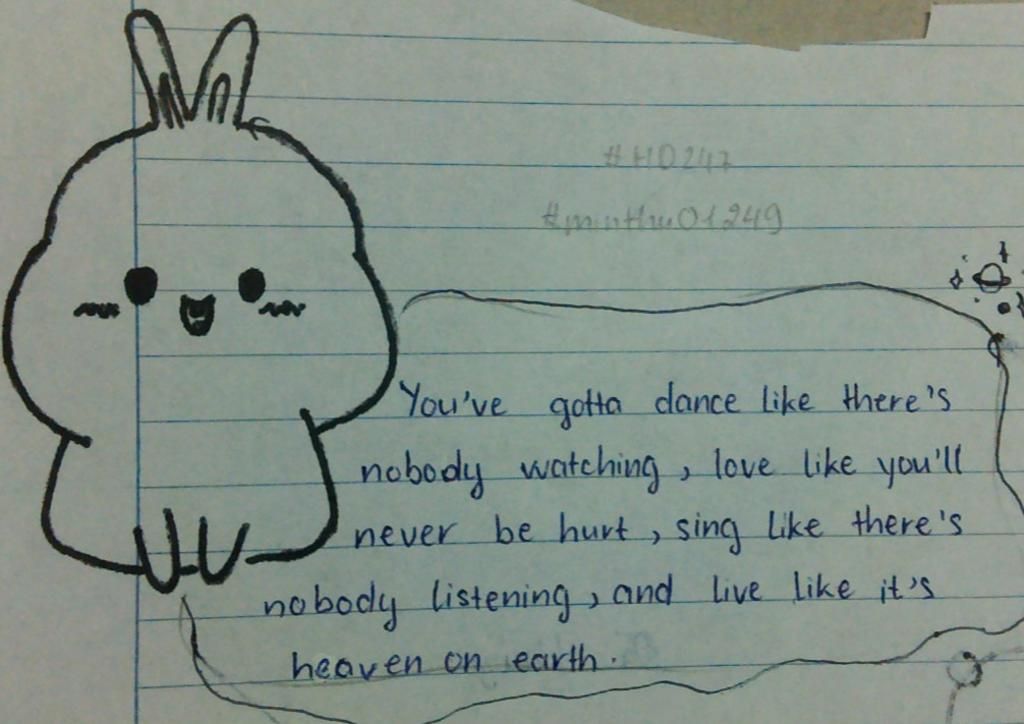 #HD247
#minthu01249
You've gotta dance like there's
nobody watching, love like you'll
never be hurt, sing like there's
nobody listening, and live like it's
heaven on earth.